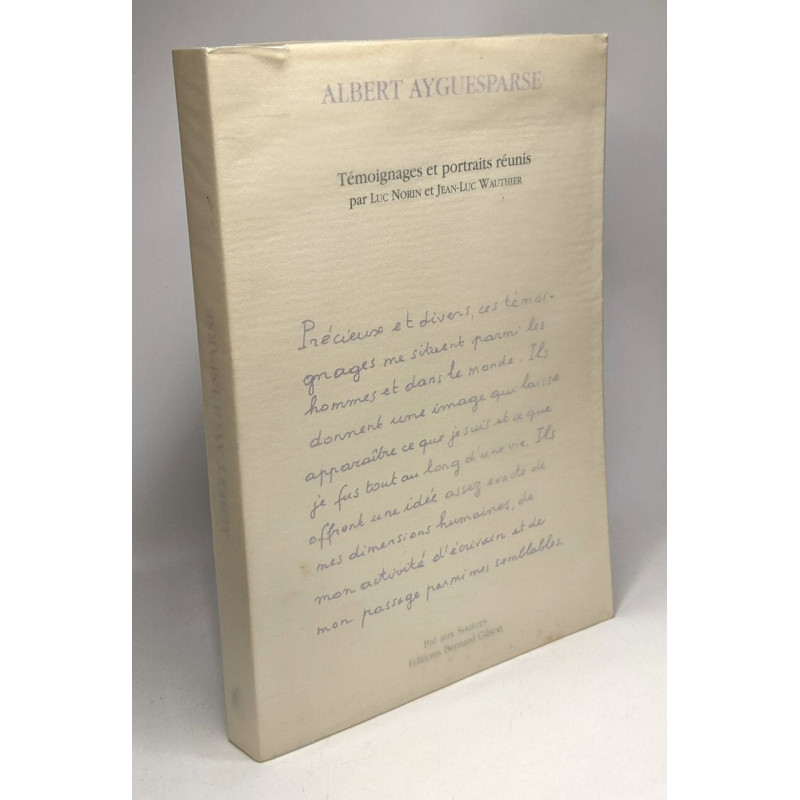 ALBERT AYGUESPARSE
Témoignages et portraits réunis
par LUC NORIN et JEAN-LUC WAUTHIER
Précieux et divers, ces témoi-
gnages me situent parmi les
hommes et dans le monde. Ils
donnent une image qui laisse
apparaître ce que je suis et ce que
je fus tout au long d'une vie. Ils
offrent une idée assez exacte de
mes dimensions humaines, de
mon activité d'écrivain et de
mon passage parmi mes semblables.
Pré aux Sources
Editions Bernard Gilson
ALBERT AYGUESPARSE